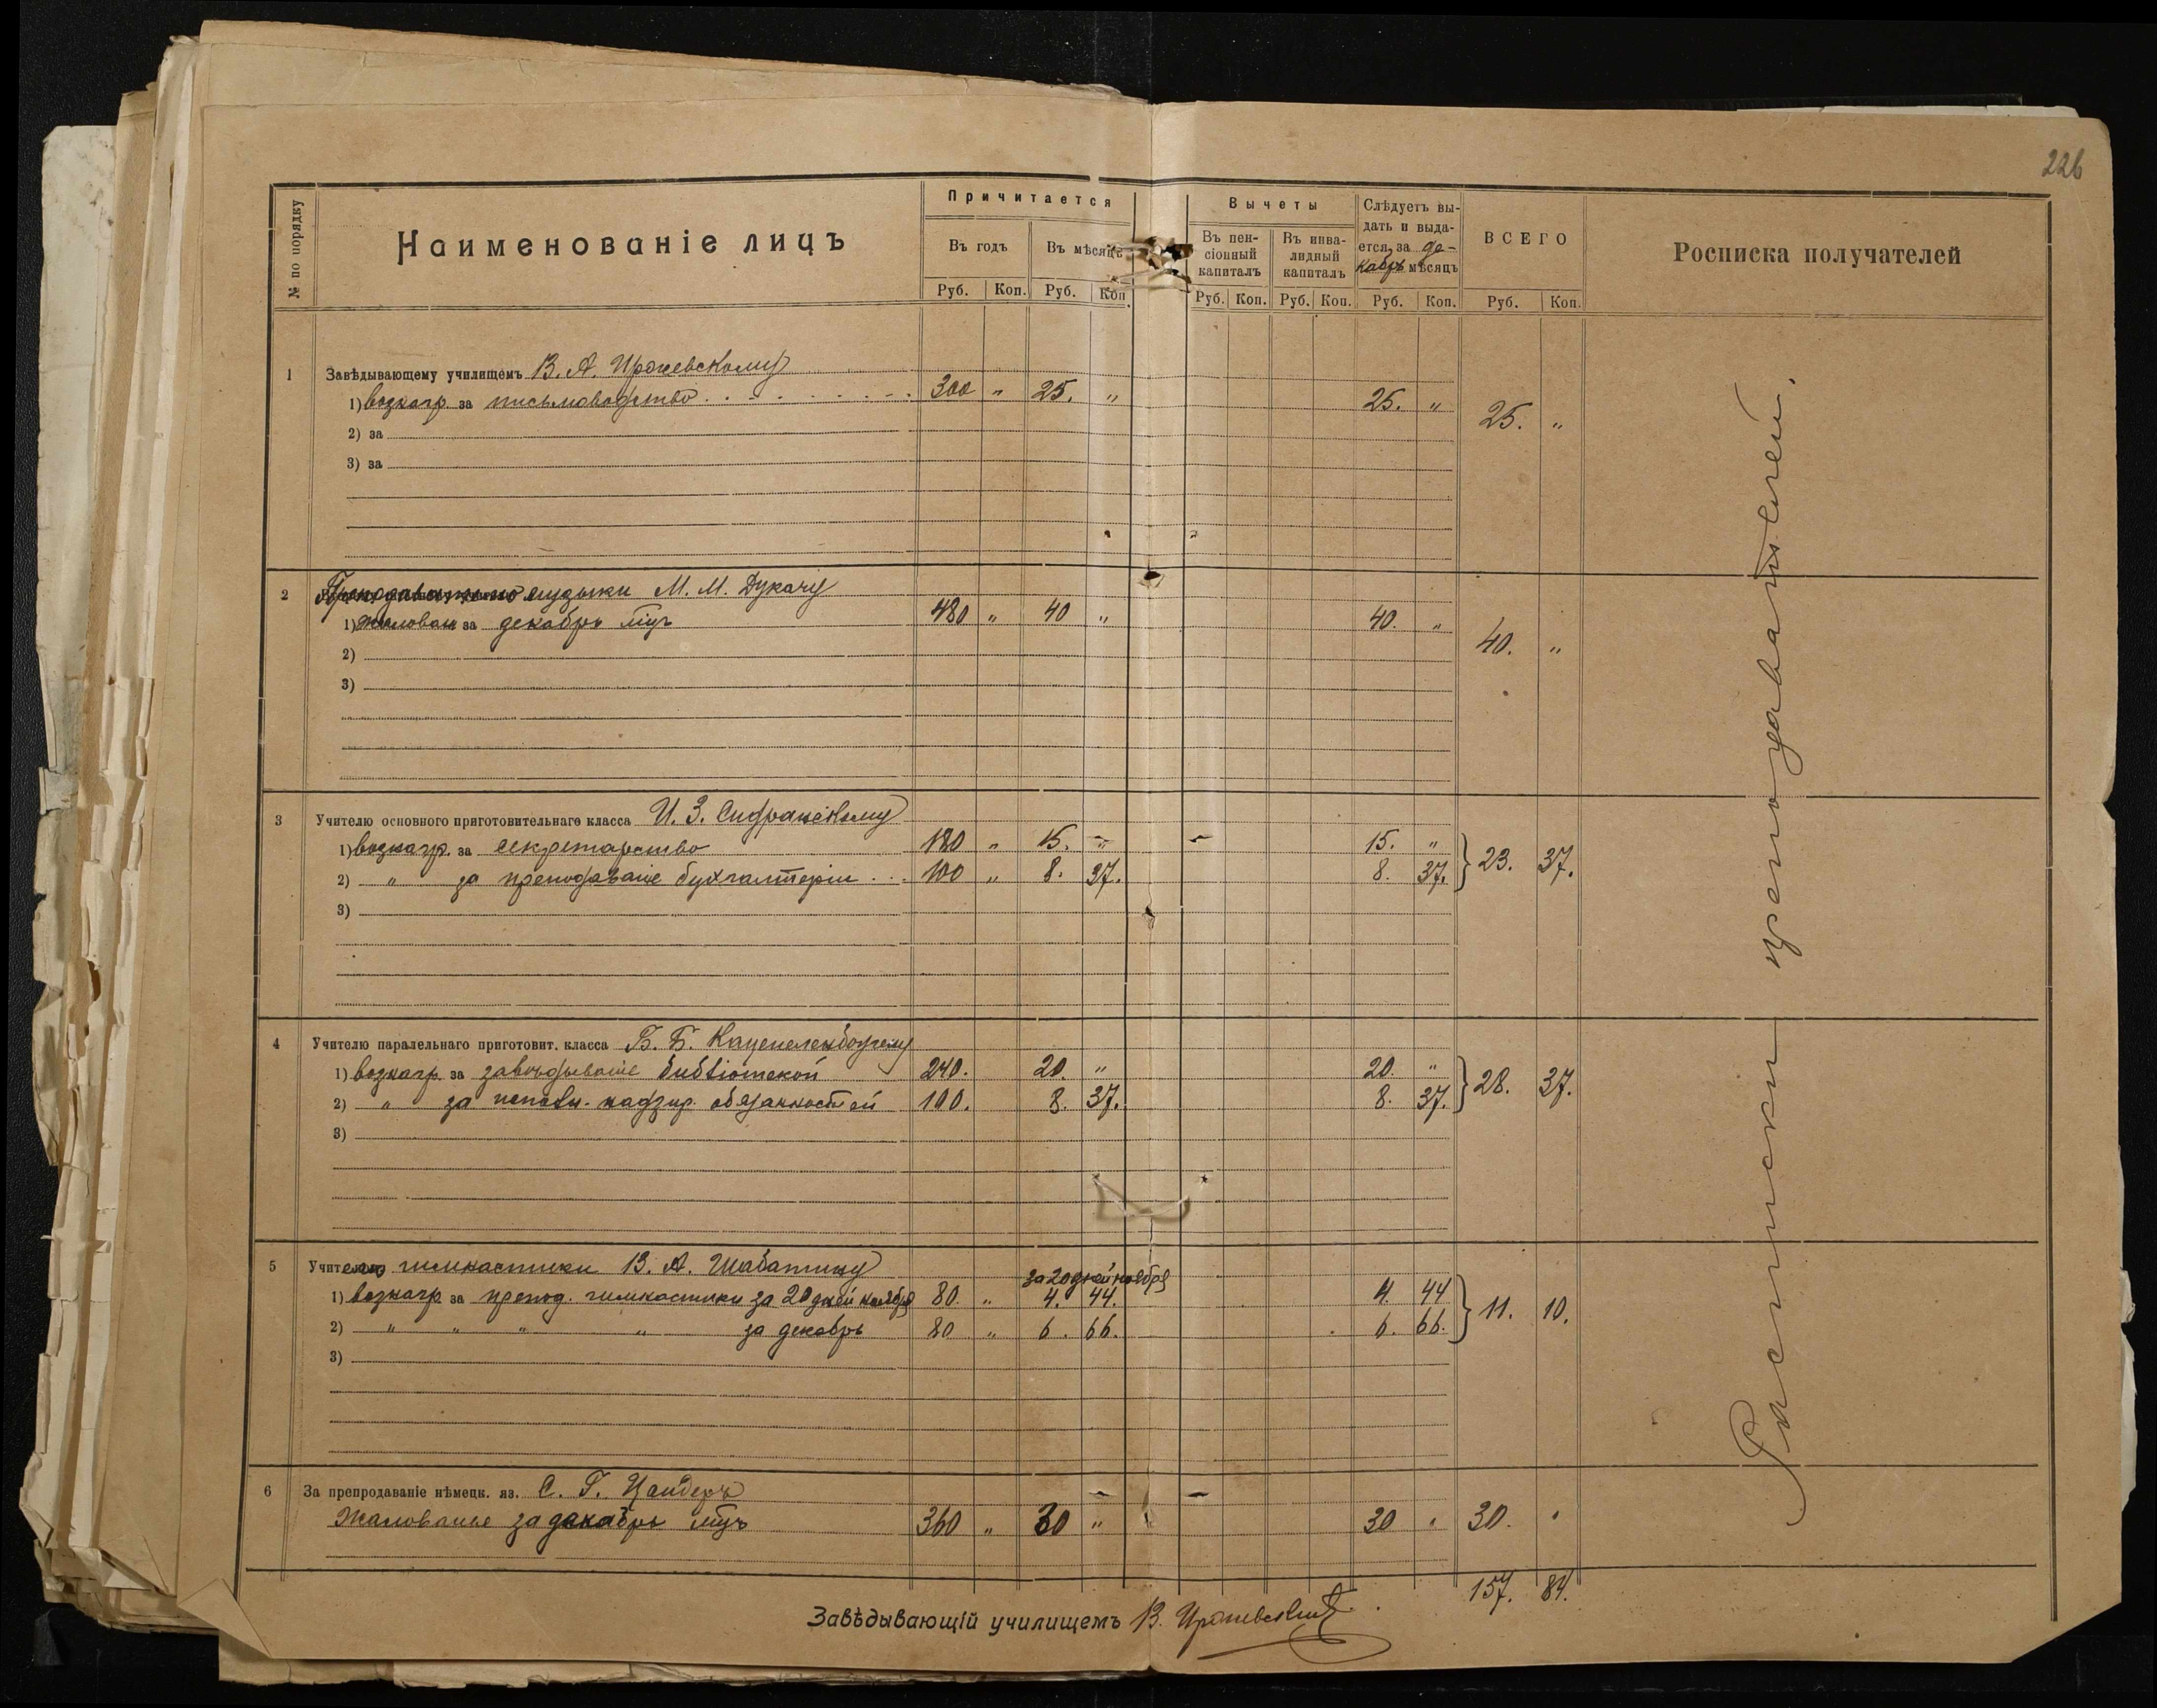 226
№ по порядку
Наименованіе лицъ
Причитается
Въ годъ
Въ мѣсяцъ
Руб. Коп. Руб. Коп.
Вычеты
Въ пен-
сіонный
капиталъ
Въ инва-
лидный
капиталъ
Руб. Коп. Руб. Коп.
Слѣдуетъ вы-
дать и выда-
ется за де-
кабрь мѣсяцъ
Руб. Коп.
ВСЕГО
Руб. Коп.
Росписка получателей
1 Завѣдывающему училищемъ В. А.
1) вознагр. за письмоводство 300 " 25. " 25. " 25. "
2) за
3) за
2 Преподавателю музыки М. М. Дукачу
1) Жалован за декабрь мцъ 480 " 40 " 40. " 40. "
2)
3)
3 Учителю основного приготовительнаго класса И. З.
1) вознагр. за секретарство 180 " 15. " 15. "
2) " за преподаваніе бухгалтеріи 100 " 8. 37. 8. 37. 23. 37.
3)
4 Учителю паралельнаго приготовит. класса Б. Б. Каценеленбогену
1) вознагр. за завѣдываніе библіотекой 240. 20. " 20. "
2) " за исполн. надзир. обязанностей 100. 8. 37. 8. 37. 28. 37.
3)
5 Учителю гимнастики В. А. Шабатину
за 20 дней ноября
1) вознагр. за препод. гимнастики за 20 дней ноября 80. " 4. 44. 4. 44
2) " " " " за декабрь 80 " 6. 66. 6. 66. 11. 10.
3)
6 За препродаваніе нѣмецк. яз. С. Г. Цандеръ
Жалованье за декабрь мцъ 360 " 30 " 30 " 30. "
157. 84.
Завѣдывающій училищемъ В.
Расписки преподавателей.